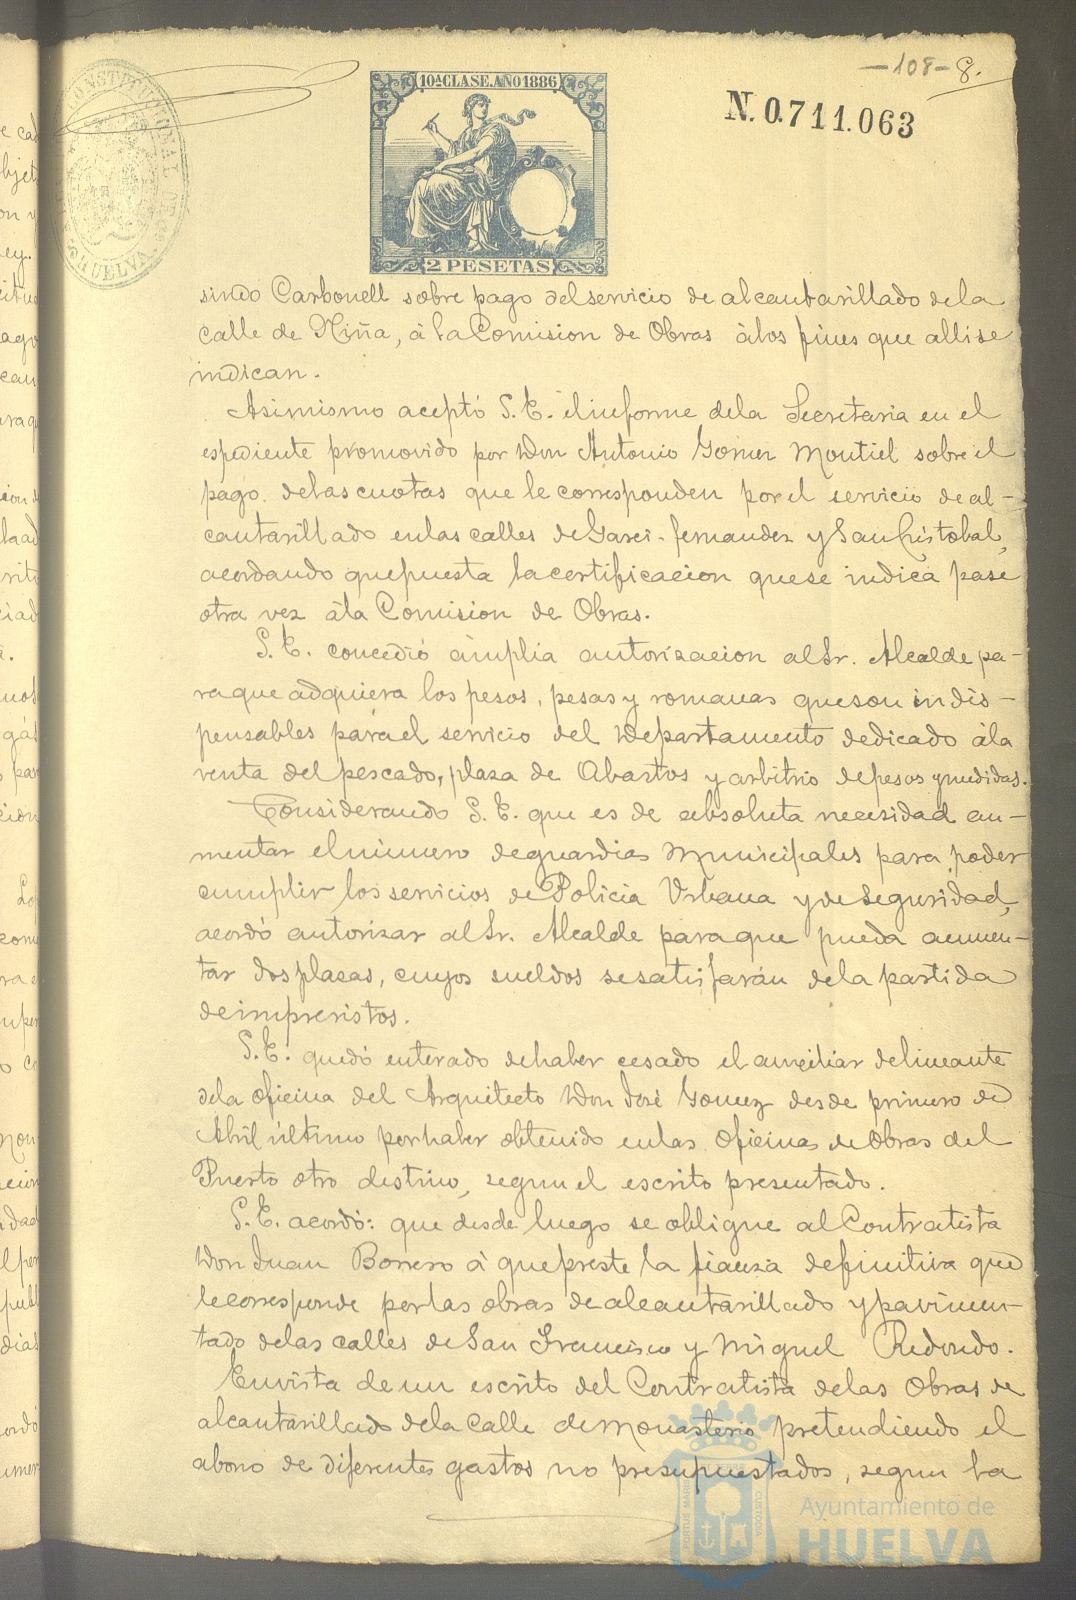 -108- 8.
10ª CLASE. AÑO 1886
N. 0.711.063
CONSTITUCIONAL DE
HUELVA
2 PESETAS
sindo Carbonell sobre pago del servicio de alcantarillado de la
calle de Niña, á la Comision de Obras à los fines que alli se
indican.
Asimismo aceptó S. E. el informe de la Secretaria en el
espediente promovido por Don Antonio Gomez Montiel sobre el
pago de las cuotas que le corresponden por el servicio de al-
cantarillado en las calles de Garci-fernandez y San Cristobal,
acordando que puesta la certificacion que se indica pase
otra vez à la Comision de Obras.
S. E. concedió ámplia autorizacion al Sr. Alcalde pa-
ra que adquiera los pesos, pesas y romanas que son indis-
pensables para el servicio del Departamento dedicado à la
venta del pescado, plaza de Abastos y arbitrio de pesos y medidas.
Considerando S. E. que es de absoluta necesidad au-
mentar el número de guardias Municipales para poder
cumplir los servicios de Policia Urbana y de Seguridad,
acordó autorizar al Sr. Alcalde para que pueda aumen-
tar dos plazas, cuyos sueldos se satisfarán de la partida
de imprevistos.
S. E. quedó enterado de haber cesado el auxiliar delineante
de la oficina del Arquitecto Don José Gomez desde primero de
Abril último por haber obtenido en las oficinas de Obras del
Puerto otro destino, segun el escrito presentado.
S. E. acordó: que desde luego se obligue al Contratista
Don Juan Borrero á que preste la fianza definitiva que
le corresponde por las obras de alcantarillado y pavimen-
tado de las calles de San Francisco y Miguel Redondo.
En vista de un escrito del Contratista de las Obras de
alcantarillado de la Calle de Monasterio pretendiendo el
abono de diferentes gastos no presupuestados, segun la
PORTUS MARIS
CUSTODIA
Ayuntamiento de
HUELVA